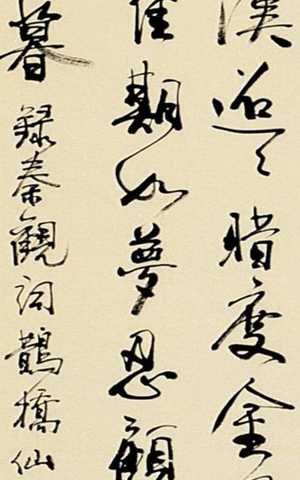 漢迢々暗度金
佳期如夢忍顧
暮
錄秦觀詞鵲橋仙